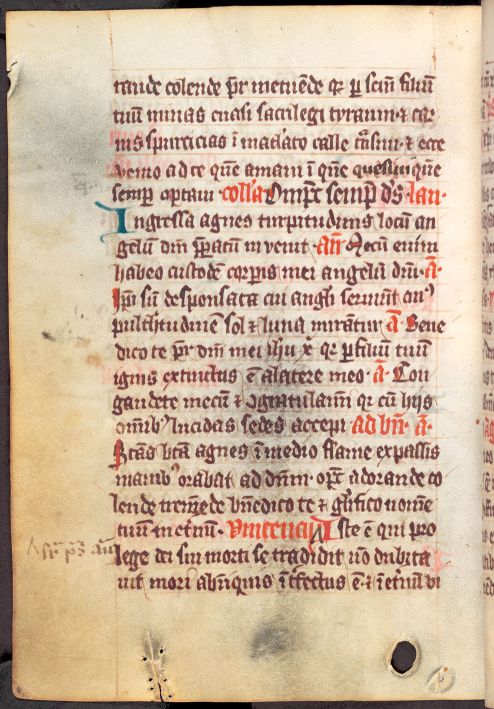 rande colende pr̄ metuēde qr p̱ sctm̄ filiū
tuū minas euasi sacrilegi tyranni ⁊ car
nis spurcicias ī maclato calle trāsiui ⁊ ecce
venio ad te quē amaui ī quē quesiui quē
semp optaui · collā Omīpt̄ē semp d̄s · lau ·
Ingressa agnes turpitudinis locū an
gelū dn̄i ꝑpatū inuenit · an̄ Mecū enim
habeo custodē corpis mei angelū dn̄i · a̅ ·
Ip̄i sū desponsata cui angl̄i seruiūt cuiꝰ
pulchritudinē sol ⁊ luna mirātur a̅ Bene
dico te pr̄ dn̄i mei ih̄u x̄ qr p̱ filiū tuū
ignis extinctus ē a latere meo · a̅ · Con
gaudete mecū ⁊ ꝯgratulamī qr cū hijs
om̄ibꝰ lucidas sedes accepi ad bn̄ · a̅ ·
Stās btā agnes ī medio flāme expāssis
manibꝰ orabat ad dn̄m · op̄t̄ adorande co
lende tremēde bn̄edico te ⁊ gl̄ifico nomē
tuū in et̄nū · Vincencij Iste ē qui pro
lege dei sui morti se tradidit nō dubita
uit mori ab iniquis īt̄fectus ē ⁊ ī et̄nū vi